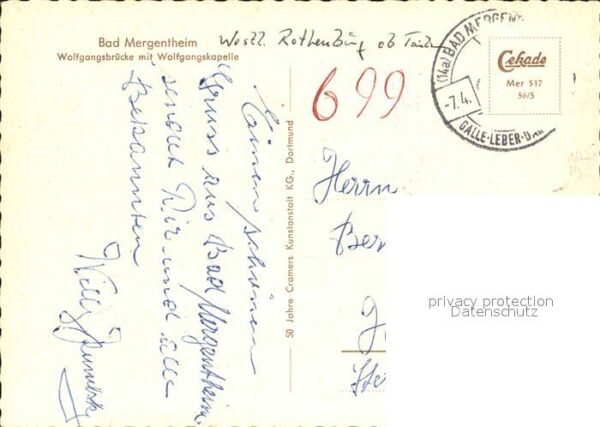 Bad Mergentheim
Wolfgangsbrücke mit Wolfgangskapelle
westl. Rothenburg ob Taub
699
(14a) BAD MERGENT
-7.4.
GALLE-LEBER-U
Cekade
Mer 517
56/5
Einen schönen
Gruss aus Bad Mergentheim
sendet Dir und alle
Bekannten
Willy
50 Jahre Cramers Kunstanstalt KG., Dortmund
Herrn
Ber
privacy protection
Datenschutz